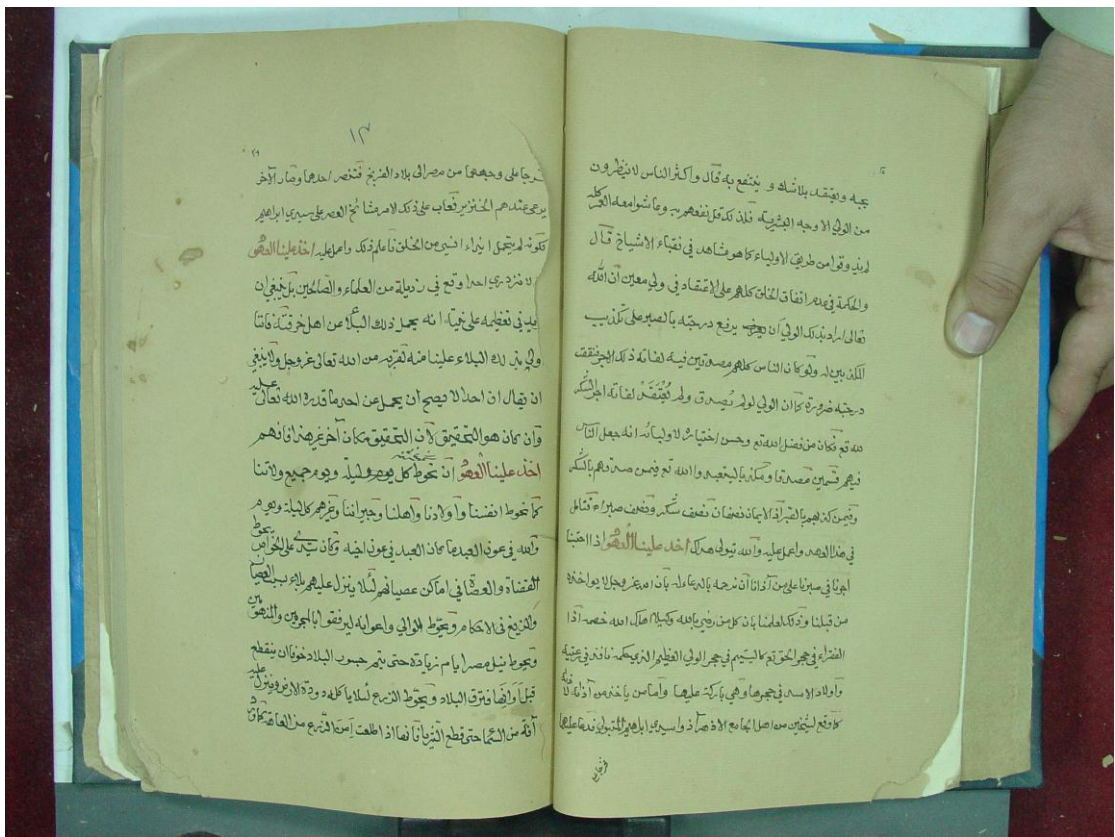 يحبه ويعتقد بلا شك و ينتفع به قال واكثر الناس لا ينظرون
من الولي الا وجه البشرية فلذلك قل نفعهم به وعاشوا معه العمر كله
لم يذوقوا من طريق الاولياء كما هو مشاهد في نقباء الاشياخ قال
والحكمة في عدم اتفاق الخلق كلهم على الاعتقاد في ولي معين ان الله
تعالى اراد بذلك الولي ان يرفع درجته بالصبر على تكذيب
المكذبين له ولو كان الناس كلهم مصدقين فيه لفاته ذلك الاجر فنقصت
درجته ضرورة كما ان الولي لو لم يصدق ولم يعتقد لفاته اجر الشكر
لله تع فكان من فضل الله تع وحسن اختياره لاوليائه انه جعل الناس
فيهم قسمين مصدقا ومكذبا ليتعبدوا الله تع فيمن صدقهم بالشكر
وفيمن كذبهم بالصبر اذ الايمان نصفان نصف شكر ونصف صبر فتامل
في هذا العهد واعمل عليه والله يتولى هداك اخذ علينا العهود اذا احتسبنا
اجورنا في صبرنا على من آذانا أن نرحمه بالدعاء له بان الله عز وجل لا يواخذه
من قبلنا وذلك لعلمنا بان كل من رضي بالله وكيلا هلك الله خصمه اذا
الفقراء في حجر الحق تع كاليتيم في حجر الولي العظيم الذي حكمه نافذ في رعيته
و اولاد الاسد في حجرها وهي باركة عليها وأما من ياخذ من آذاه
كما وقع لشيخين من اهل الجامع الازهر آذوا سيدي ابراهيم المتبولي فدعا عليهما
فخرجا
١٣
٢٦
فخرجا على وجههما من مصر الى بلاد الفرنج فتنصر احدهما وصار الآخر
يرعى عندهم الخنزير فعاب على ذلك الامر مشايخ العصر على سيدي ابراهيم
لكونه لم يتحمل ايذاء اثنين من الخلق فاعلم ذلك واعمل عليه اخذ علينا العهود
لا نزدري احدا وقع في رذيلة من العلماء والصالحين بل ينبغي ان
يزيد في تعظيمه على نية انه يحمل ذلك البلاء عن اهل خرقته فاننا
ولم ينزل ذلك البلاء علينا منه لقربه من الله تعالى عز وجل ولا ينبغي
ان يقال ان احدا لا يصح أن يحمل عن احد ما قدره الله تعالى عليه
وان كان هو التحقيق لان التحقيق مكان آخر غير هذا فافهم
اخذ علينا العهود ان نحوط كل يوم وليلة ويوم جميع ولاتنا
كما نحوط انفسنا و أولادنا وأهلنا وجيراننا وغيرهم كل ليلة ويوم
والله في عون العبد ما كان العبد في عون اخيه وكان سيدي علي الخواص يحوط
القضاة والعصاة في اماكن عصيانهم لئلا ينزل عليهم بلاء بسبب العصيان
والزيغ في الاحكام ويحوط الوالي واعوانه ليرفقوا بالمجرمين والمتهومين
ويحوط نيل مصر ايام زيادة حتى يتم حبوب البلاد خوفا ان ينقطع
قبل أوانها فتغرق البلاد ويحوط الزرع لئلا ياكله دودة الارض وينزل عليه
آفة من السما حتى قطع الثريا فانها اذا طلعت أمن الزرع من العاهة